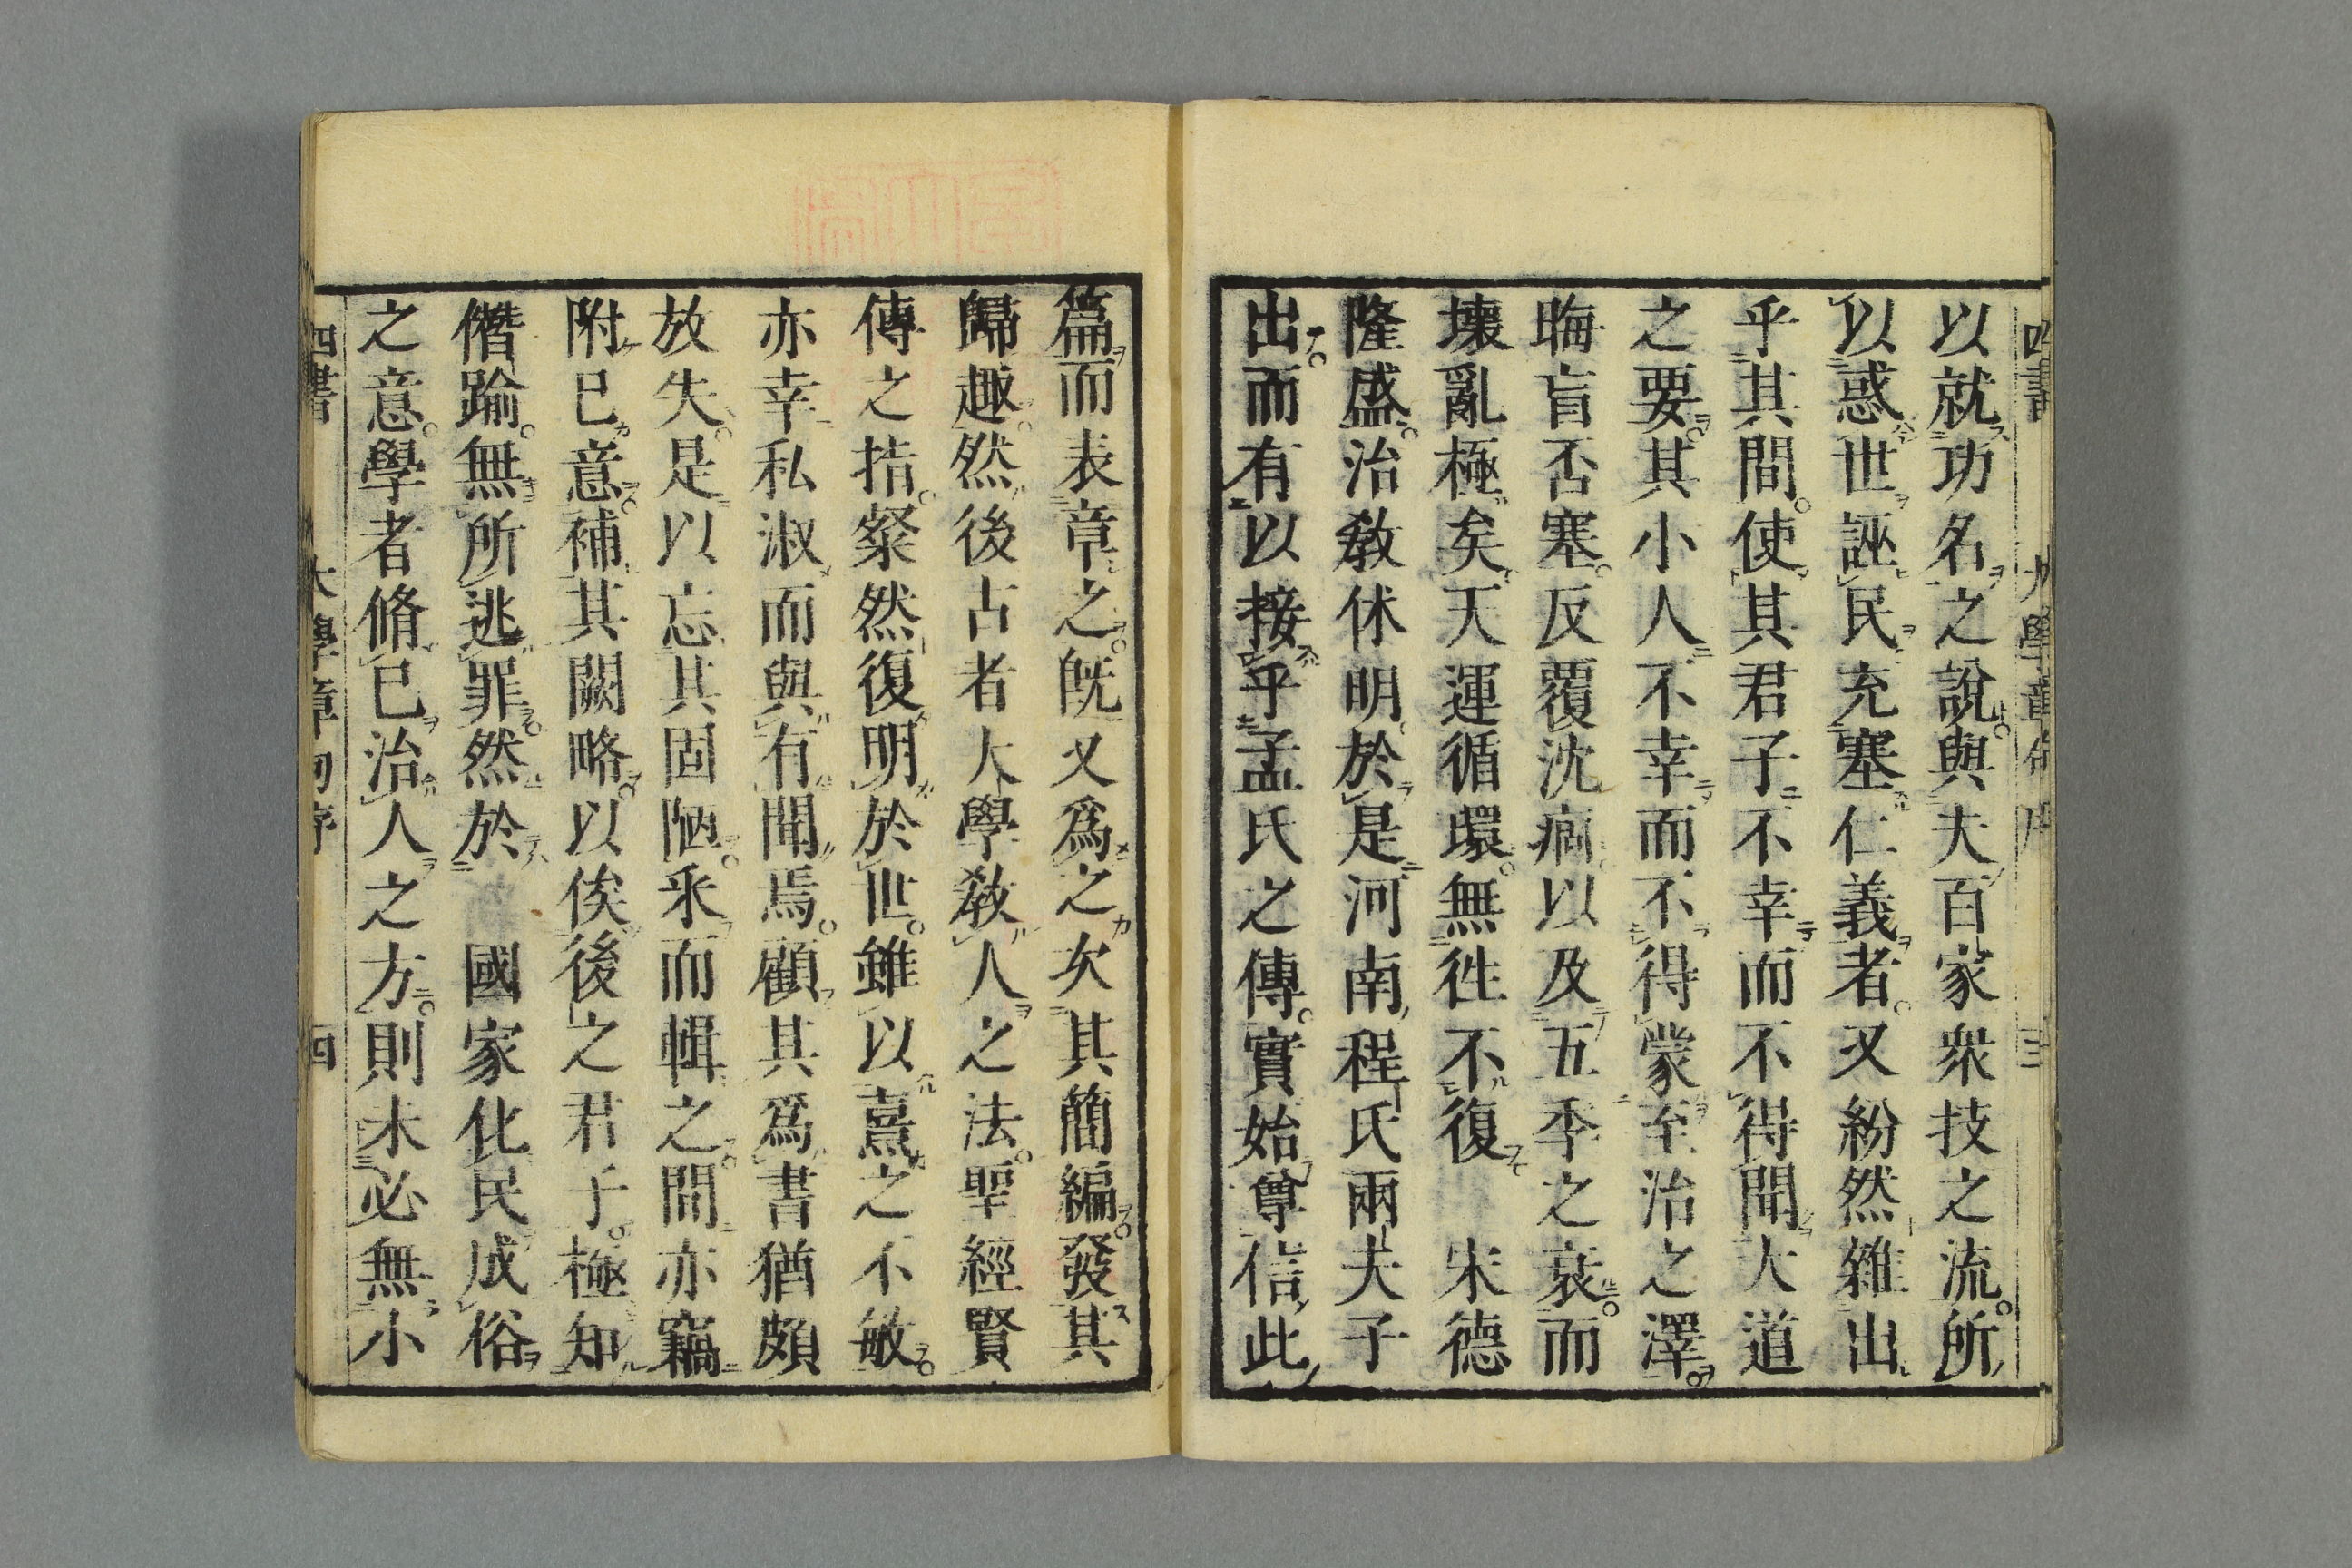 四書 大學章句序 三
以就功名之說與夫百家衆技之流所
以惑世誣民充塞仁義者又紛然雜出
乎其間使其君子不幸而不得聞大道
之要其小人不幸而不得蒙至治之澤
晦盲否塞反覆沈痼以及五季之衰而
壞亂極矣天運循環無徃不復 宋德
隆盛治敎休明於是河南程氏兩夫子
出而有以接乎孟氏之傳實始尊信此
篇而表章之既又爲之次其簡編發其
歸趣然後古者大學敎人之法聖經賢
傳之指粲然復明於世雖以熹之不敏
亦幸私淑而與有聞焉顧其爲書猶頗
放失是以忘其固陋釆而輯之間亦竊
附已意補其闕略以俟後之君子極知
僭踰無所逃罪然於 國家化民成俗
之意學者脩已治人之方則未必無小
四書 大學章句序 四